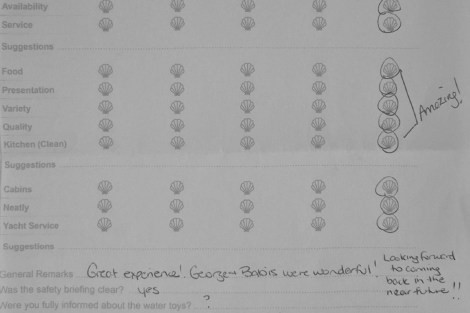 Availability
Service
Suggestions
Food
Presentation
Variety
Quality
Kitchen (Clean)
Amazing!
Suggestions
Cabins
Neatly
Yacht Service
Suggestions
General Remarks Great experience! George + were wonderful!
Looking forward
to coming
back in the
near future!!
Was the safety briefing clear? yes
Were you fully informed about the water toys? ?